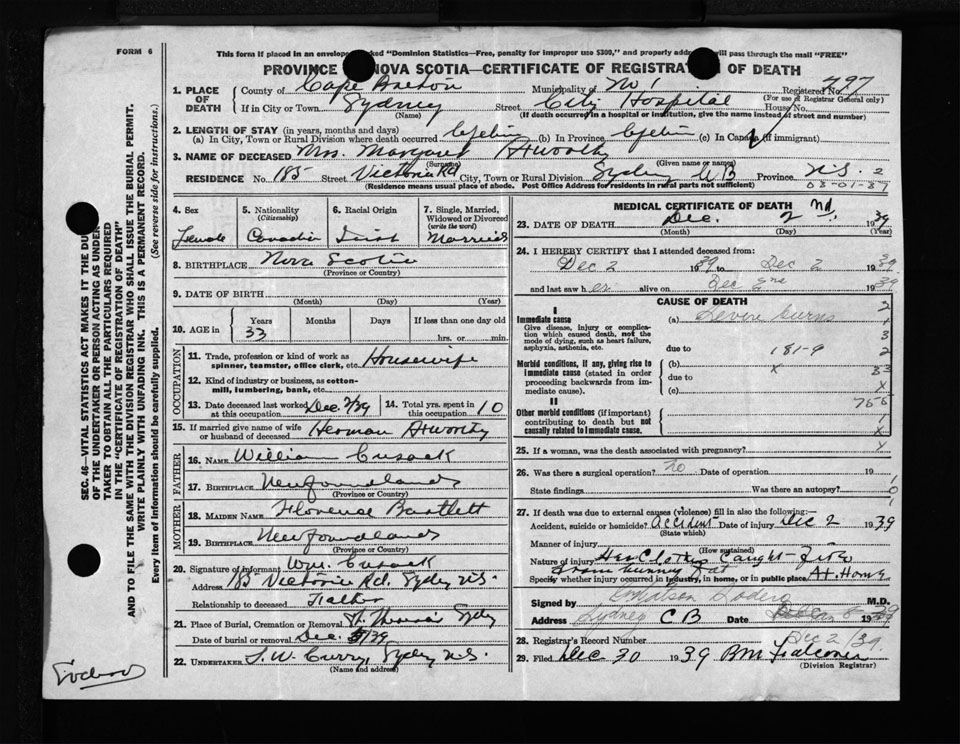 FORM 6
This form if placed in an envelope marked "Dominion Statistics—Free, penalty for improper use $300," and properly addressed will pass through the mail "FREE"
PROVINCE OF NOVA SCOTIA—CERTIFICATE OF REGISTRATION OF DEATH
1. PLACE OF DEATH
County of Cape Breton Municipality of No 1 Registered No. 497
(For use of Registrar General only)
If in City or Town Sydney Street City Hospital House No.
(Name) (If death occurred in a hospital or institution, give the name instead of street and number)
2. LENGTH OF STAY (in years, months and days)
(a) In City, Town or Rural Division where death occurred Lifetime (b) In Province Lifetime (c) In Canada (if immigrant)
3. NAME OF DECEASED Mrs. Margaret
(Surname) (Given name or names)
RESIDENCE No. 185 Victoria Rd. City, Town or Rural Division Sydney CB Province N.S. 2
(Residence means usual place of abode. Post Office Address for residents in rural parts not sufficient) 03-01-87
4. Sex
Female
5. Nationality (Citizenship)
Canadian
6. Racial Origin
Irish
7. Single, Married, Widowed or Divorced (write the word)
Married
8. BIRTHPLACE Nova Scotia
(Province or County)
9. DATE OF BIRTH
(Month) (Day) (Year)
10. AGE in
Years Months Days If less than one day old
33 hrs. or min.
OCCUPATION
11. Trade, profession or kind of work as spinner, teamster, office clerk, etc. Housewife
12. Kind of industry or business, as cotton-mill, lumbering, bank, etc.
13. Date deceased last worked at this occupation Dec 2/39
14. Total yrs. spent in this occupation 10
15. If married give name of wife or husband of deceased Herman
FATHER
16. NAME William Cusack
17. BIRTHPLACE Newfoundland
(Province or Country)
MOTHER
18. MAIDEN NAME Florence Bartlett
19. BIRTHPLACE Newfoundland
(Province or Country)
20. Signature of Informant Wm. Cusack
Address 185 Victoria Rd. Sydney N.S.
Relationship to deceased Father
21. Place of Burial, Cremation or Removal St. Theresa's Sydney
Date of burial or removal Dec. 5/39
22. UNDERTAKER S. W. Curry, Sydney N.S.
(Name and address)
MEDICAL CERTIFICATE OF DEATH
23. DATE OF DEATH Dec. 2 nd. 1939
(Month) (Day) (Year)
24. I HEREBY CERTIFY that I attended deceased from:
Dec 2 1939 to Dec 2 1939
and last saw her alive on Dec 2nd 1939
CAUSE OF DEATH
I
Immediate cause
Give disease, injury or complication which caused death, not the mode of dying, such as heart failure, asphyxia, asthenia, etc.
(a) Severe burns
due to 181-9
Morbid conditions, if any, giving rise to immediate cause (stated in order proceeding backwards from immediate cause).
(b) x
due to
(c)
II
Other morbid conditions (if important) contributing to death but not causally related to immediate cause.
25. If a woman, was the death associated with pregnancy? x
26. Was there a surgical operation? no Date of operation 19
State findings Was there an autopsy?
27. If death was due to external causes (violence) fill in also the following:
Accident, suicide or homicide? accident Date of injury Dec 2 1939
(State which)
Manner of injury
(How sustained)
Nature of injury Her Clothes Caught Fire
from burning Fat
Specify whether injury occurred in industry, in home, or in public place At Home
Signed by M.D.
Address Sydney CB Date 1939
28. Registrar's Record Number Dec 2/39.
29. Filed Dec 30 1939 RM Falconer
(Division Registrar)
SEC. 46—VITAL STATISTICS ACT MAKES IT THE DUTY OF THE UNDERTAKER OR PERSON ACTING AS UNDERTAKER TO OBTAIN ALL THE PARTICULARS REQUIRED IN THE "CERTIFICATE OF REGISTRATION OF DEATH"
AND TO FILE THE SAME WITH THE DIVISION REGISTRAR WHO SHALL ISSUE THE BURIAL PERMIT.
WRITE PLAINLY WITH UNFADING INK. THIS IS A PERMANENT RECORD.
Every item of information should be carefully supplied. (See reverse side for instructions.)